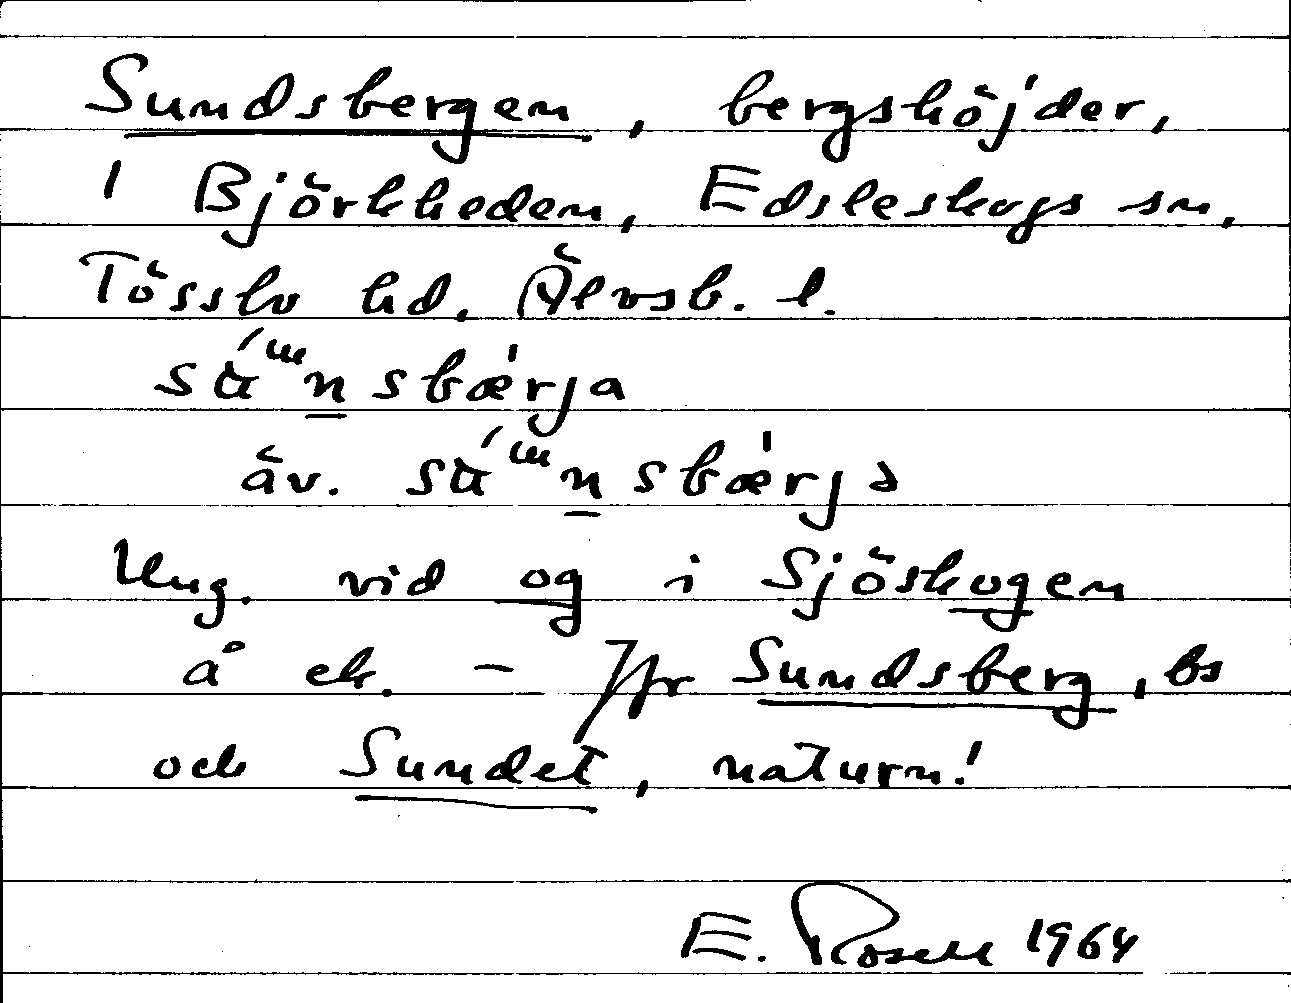 Sundsbergen, bergshöjder,
i Björkheden, Edsleskogs sn,
Tössbo hd, Älvsb. l.
sú̵ᵚn̲sbæ̍rja
äv. sú̵ᵚn̲sbæ̍rjə
Ung. vid og i Sjöskogen
å ek. – Jfr Sundsberg, bs
och Sundet, naturn!
E. Rosell 1964